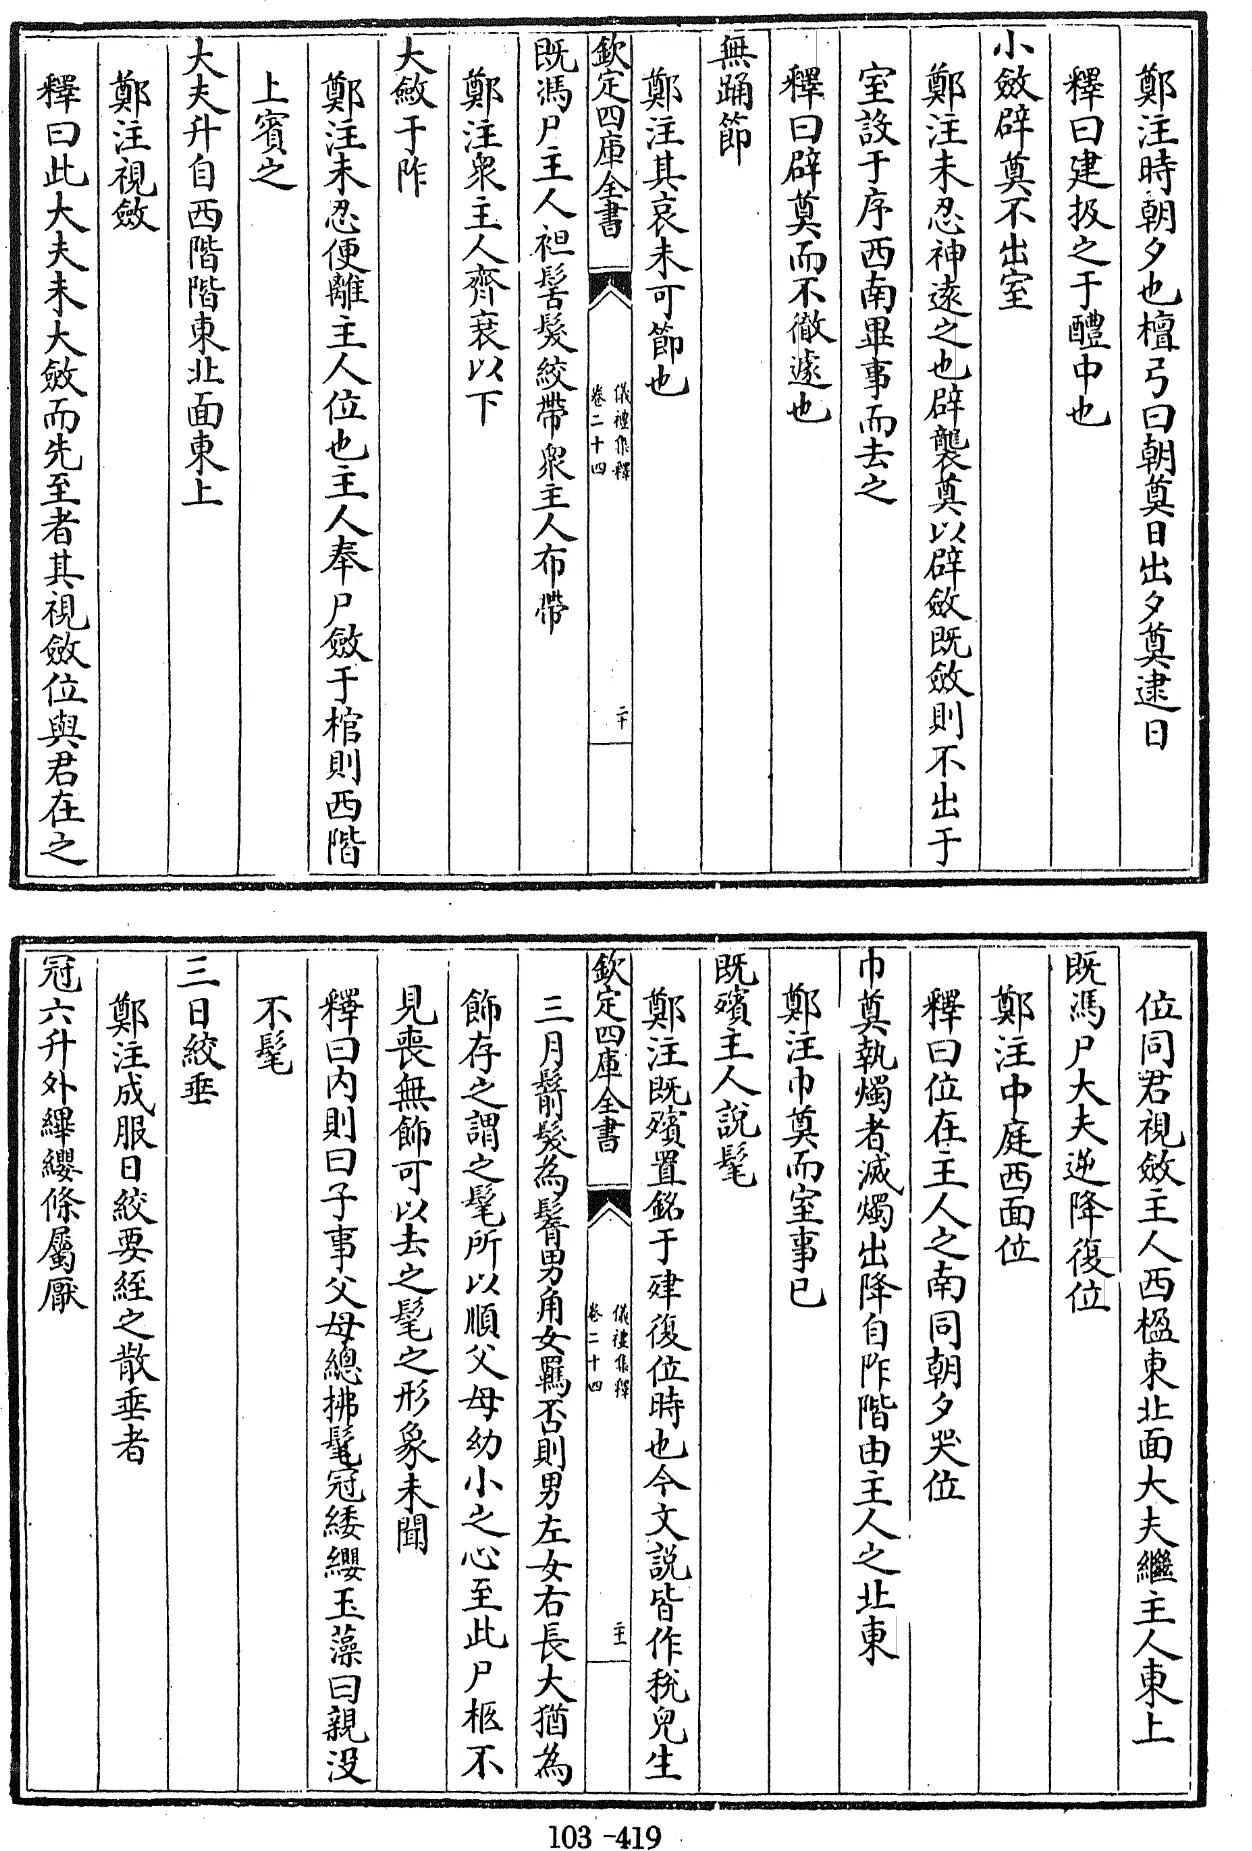 鄭注時朝夕也檀弓曰朝奠日出夕奠逮日
釋曰建扱之于醴中也
小斂辟奠不出室
鄭注未忍神遠之也辟襲奠以辟斂既斂則不出于
室設于序西南畢事而去之
釋曰辟奠而不徹遽也
無踊節
鄭注其哀未可節也
欽定四庫全書
儀禮集釋
卷二十四
二十
既馮尸主人袒髺髮絞帶衆主人布帶
鄭注衆主人齊衰以下
大斂于阼
鄭注未忍便離主人位也主人奉尸斂于棺則西階
上賓之
大夫升自西階階東北面東上
鄭注視斂
釋曰此大夫未大斂而先至者其視斂位與君在之
位同君視斂主人西楹東北面大夫繼主人東上
既馮尸大夫逆降復位
鄭注中庭西面位
釋曰位在主人之南同朝夕哭位
巾奠執燭者滅燭出降自阼階由主人之北東
鄭注巾奠而室事已
既殯主人說髦
鄭注既殯置銘于肂復位時也今文說皆作稅兒生
欽定四庫全書
儀禮集釋
卷二十四
主
三月鬋髮為鬌男角女羈否則男左女右長大猶為
飾存之謂之髦所以順父母幼小之心至此尸柩不
見喪無飾可以去之髦之形象未聞
釋曰內則曰子事父母總拂髦冠緌纓玉藻曰親没
不髦
三日絞垂
鄭注成服日絞要絰之散垂者
冠六升外縪纓條屬厭
103-419